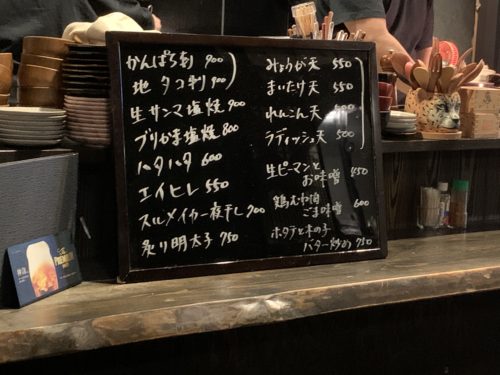 かんぱち刺 900
地タコ刺 900
生サンマ塩焼 900
ブリかま塩焼 800
ハタハタ 600
エイヒレ 550
スルメイカ一夜干し 700
炙り明太子 750
みょうが天 550
まいたけ天 550
れんこん天
ラディッシュ天 500
生ピーマンと
お味噌 450
鶏むね肉
ごま味噌 600
ホタテと木の子
バター炒め 750